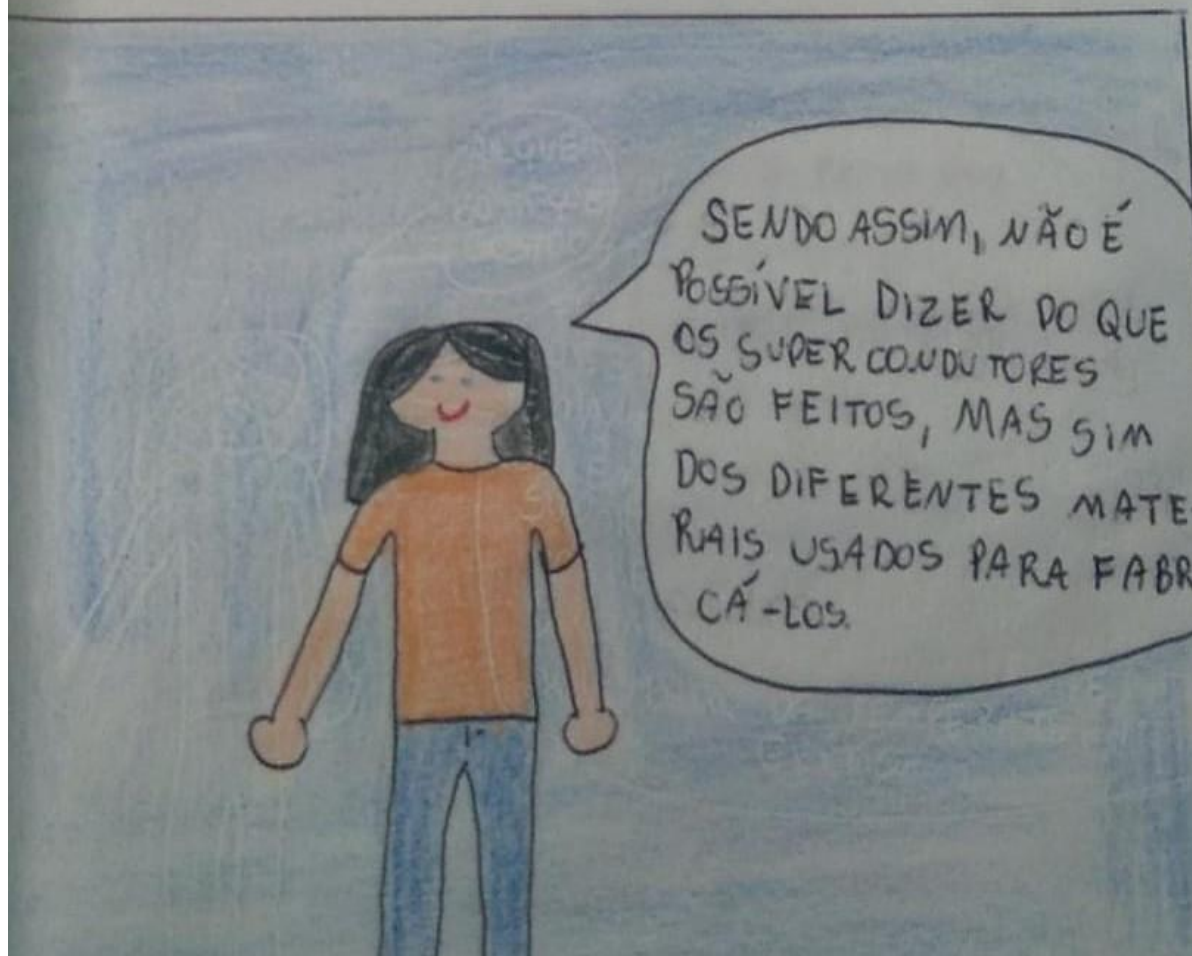 SENDO ASSIM, NÃO É
POSSÍVEL DIZER DO QUE
OS SUPERCONDUTORES
SÃO FEITOS, MAS SIM
DOS DIFERENTES MATE
RIAIS USADOS PARA FABR
CÁ-LOS.